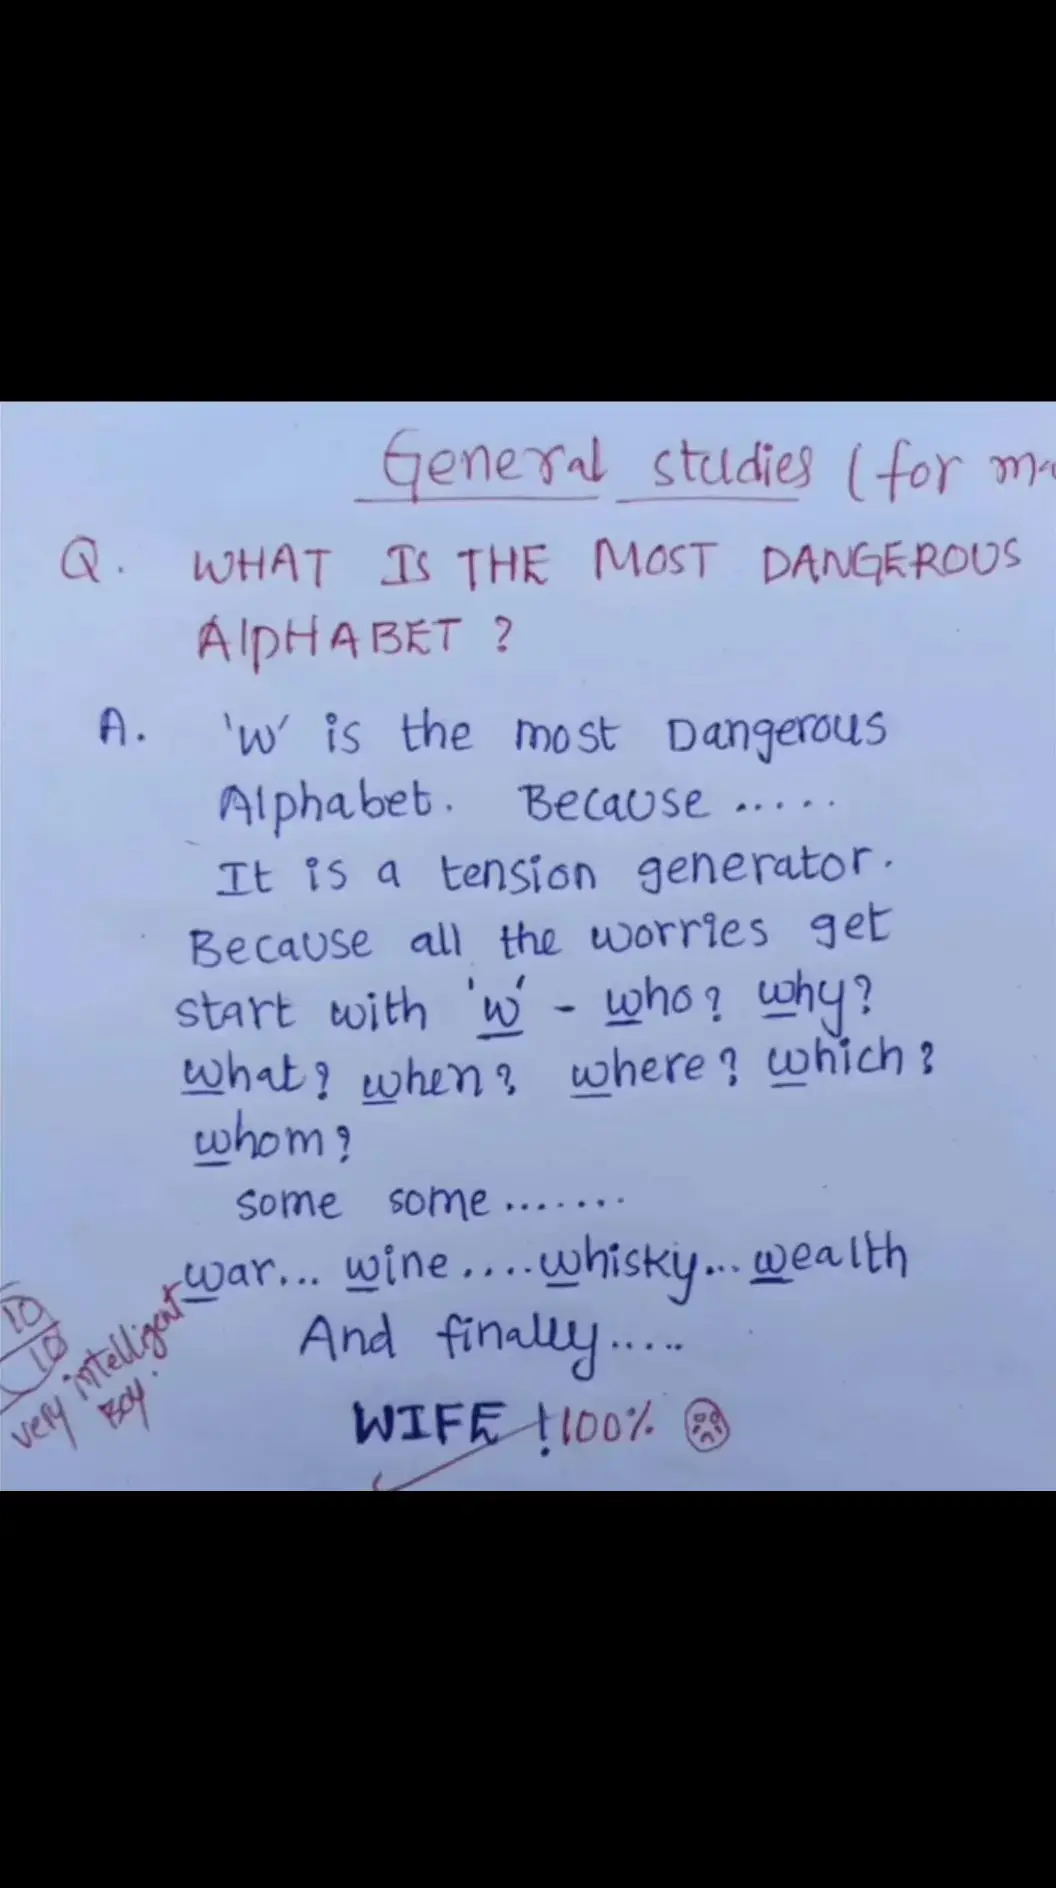 General studies (for m
Q. WHAT IS THE MOST DANGEROUS
AlPHABET ?
A. 'W' is the most Dangerous
Alphabet. Because .....
It is a tension generator.
Because all the worries get
start with 'w' - who? why?
what? when? where? which?
whom?
some some .......
war... wine .... whisky... wealth
And finally .....
WIFE ! 100%
10
10
very intelligent
Boy.